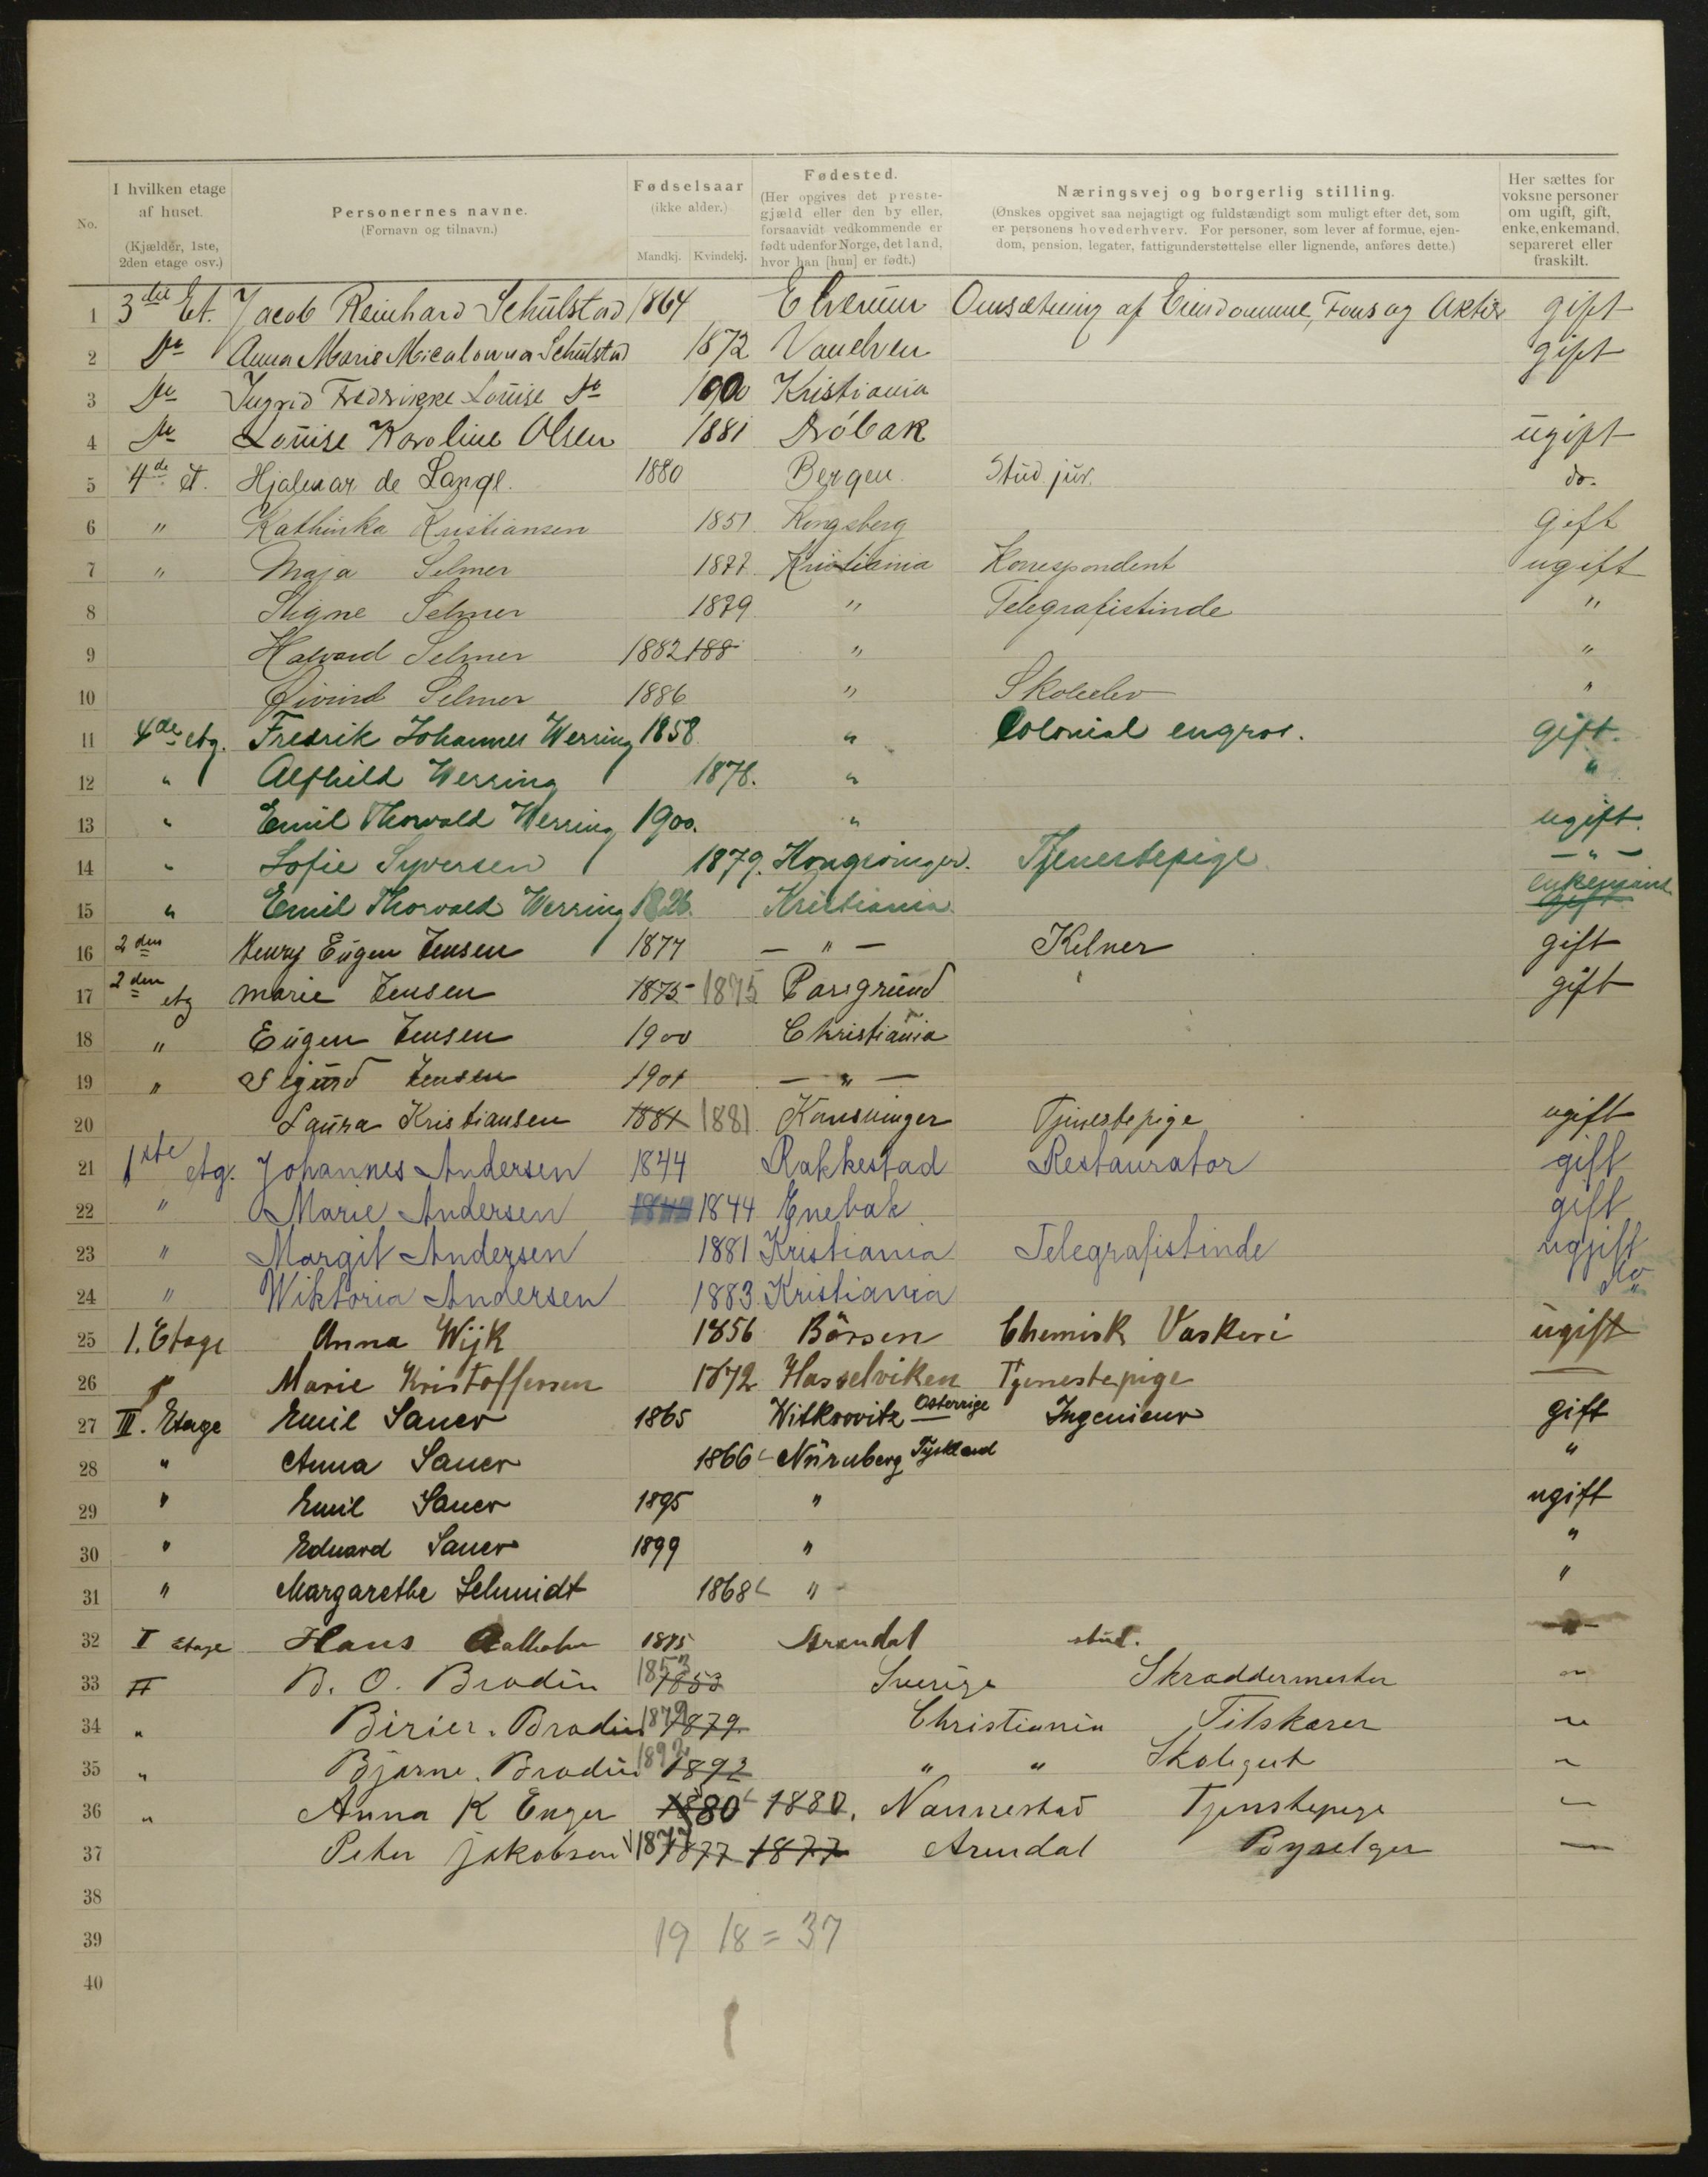 No.
I hvilken etage af huset. (Kjælder, 1ste, 2den etage osv.)
Personernes navne. (Fornavn og tilnavn.)
Fødselsaar (ikke alder.) Mandkj. Kvindekj.
Fødested. (Her opgives det prestegjæld eller den by eller, forsaavidt vedkommende er født udenfor Norge, det land, hvor han [hun] er født.)
Næringsvej og borgerlig stilling. (Ønskes opgivet saa nøjagtigt og fuldstændigt som muligt efter det, som er personens hovederhverv. For personer, som lever af formue, ejendom, pension, legater, fattigunderstøttelse eller lignende, anføres dette.)
Her sættes for voksne personer om ugift, gift, enke, enkemand, separeret eller fraskilt.
1 3die Et. Jacob Reinhard Schulstad 1864 Elverum Omsætning af Eiendomme, Fons og Aktier gift
2 Do Anna Marie Schulstad 1872 Vanelven gift
3 Do Ingrid Fredrikke Louise Do 1900 Kristiania
4 Do Louise Karoline Olsen 1881 Dróbak ugift
5 4de et. Hjalmar de Lange. 1880 Bergen. Stud. jur. do.
6 " Kathinka Kristiansen 1851 Kongsberg Gift
7 " Maja Selmer 1877 Kristiania Korrespondent ugift
8 Signe Selmer 1879 " Telegrafistinde "
9 Halvard Selmer 1882 188 " "
10 Øivind Selmer 1886 " Skoleelev "
11 4de etg. Fredrik Johannes Werring 1858 " Colonial engros. Gift.
12 " Alfhild Werring 1878. " "
13 " Emil Thorvald Werring 1900. " ugift.
14 " Sofie Syversen 1879. Kongsvinger. Tjenestepige — " —
15 " Emil Thorvald Werring 1826. Kristiania. enkemand gift
16 2den Henry Eugen Jensen 1877 — " — Kelner gift
17 2den etg Marie Jensen 1875 1875 Porsgrund gift
18 " Eugen Jensen 1900 Christiania
19 " Sigurd Jensen 1901 — " —
20 Laura Kristiansen 1881 1881 Konsvinger Tjenestepige ugift
21 1ste etg. Johannes Andersen 1844 Rakkestad Restaurator gift
22 " Marie Andersen 1844 1844 Enebak gift
23 " Margit Andersen 1881 Kristiania Telegrafistinde ugjift
24 " Wiktoria Andersen 1883 Kristiania do
25 1. Etage Anna Wijk 1856 Börsen Chemisk Vaskeri ugift
26 " Marie Kristoffersen 1872 Hasselviken Tjenestepige —
27 III. Etage Emil Sauer 1865 Witkowitz Osterrige Ingenieur gift
28 " Anna Sauer 1866 Nürnberg Tyskland "
29 " Emil Sauer 1895 " ugift
30 " Eduard Sauer 1899 " "
31 " Margarethe Schmidt 1868 " "
32 I Etage Hans 1875 Arendal stud. —
33 II B. O. Brodin 1853 1853 Sverige Skraddermester "
34 " Birier. Brodin 1879 1879 Christiania Tilskærer "
35 " Bjarne. Brodin 1892 1892 " " Skolegut "
36 " Anna K Enger 1880 1880. Nannestad Tjenstepige "
37 Peter Jakobsen 1877 1877 1877 Arendal —
38
39 19 18 = 37
40